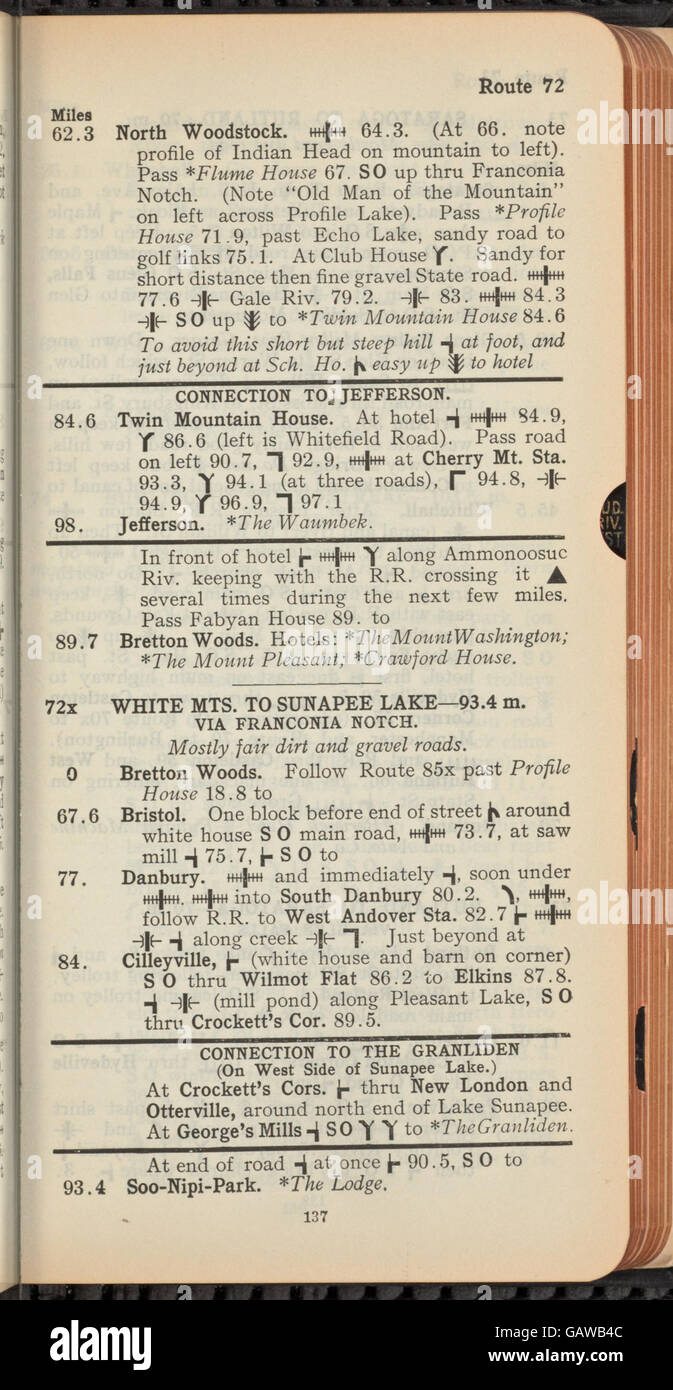 Route 72
Miles
62.3 North Woodstock. 64.3. (At 66. note
profile of Indian Head on mountain to left).
Pass *Flume House 67. SO up thru Franconia
Notch. (Note "Old Man of the Mountain"
on left across Profile Lake). Pass *Profile
House 71.9, past Echo Lake, sandy road to
golf links 75.1. At Club House . Sandy for
short distance then fine gravel State road.
77.6 Gale Riv. 79.2. 83. 84.3
SO up to *Twin Mountain House 84.6
To avoid this short but steep hill at foot, and
just beyond at Sch. Ho. easy up to hotel
CONNECTION TO JEFFERSON.
84.6 Twin Mountain House. At hotel 84.9,
86.6 (left is Whitefield Road). Pass road
on left 90.7, 92.9, at Cherry Mt. Sta.
93.3, 94.1 (at three roads), 94.8,
94.9, 96.9, 97.1
98. Jefferson. *The Waumbek.
In front of hotel along Ammonoosuc
Riv. keeping with the R.R. crossing it
several times during the next few miles.
Pass Fabyan House 89. to
89.7 Bretton Woods. Hotels: *The Mount Washington;
*The Mount Pleasant; *Crawford House.
72x WHITE MTS. TO SUNAPEE LAKE—93.4 m.
VIA FRANCONIA NOTCH.
Mostly fair dirt and gravel roads.
0 Bretton Woods. Follow Route 85x past Profile
House 18.8 to
67.6 Bristol. One block before end of street around
white house S O main road, 73.7, at saw
mill 75.7, S O to
77. Danbury. and immediately , soon under
. into South Danbury 80.2. , ,
follow R.R. to West Andover Sta. 82.7
along creek . Just beyond at
84. Cilleyville, (white house and barn on corner)
S O thru Wilmot Flat 86.2 to Elkins 87.8.
(mill pond) along Pleasant Lake, S O
thru Crockett's Cor. 89.5.
CONNECTION TO THE GRANLIDEN
(On West Side of Sunapee Lake.)
At Crockett's Cors. thru New London and
Otterville, around north end of Lake Sunapee.
At George's Mills SO to *The Granliden.
At end of road at once 90.5, S O to
93.4 Soo-Nipi-Park. *The Lodge.
137
alamy
Image ID: GAWB4C
www.alamy.com